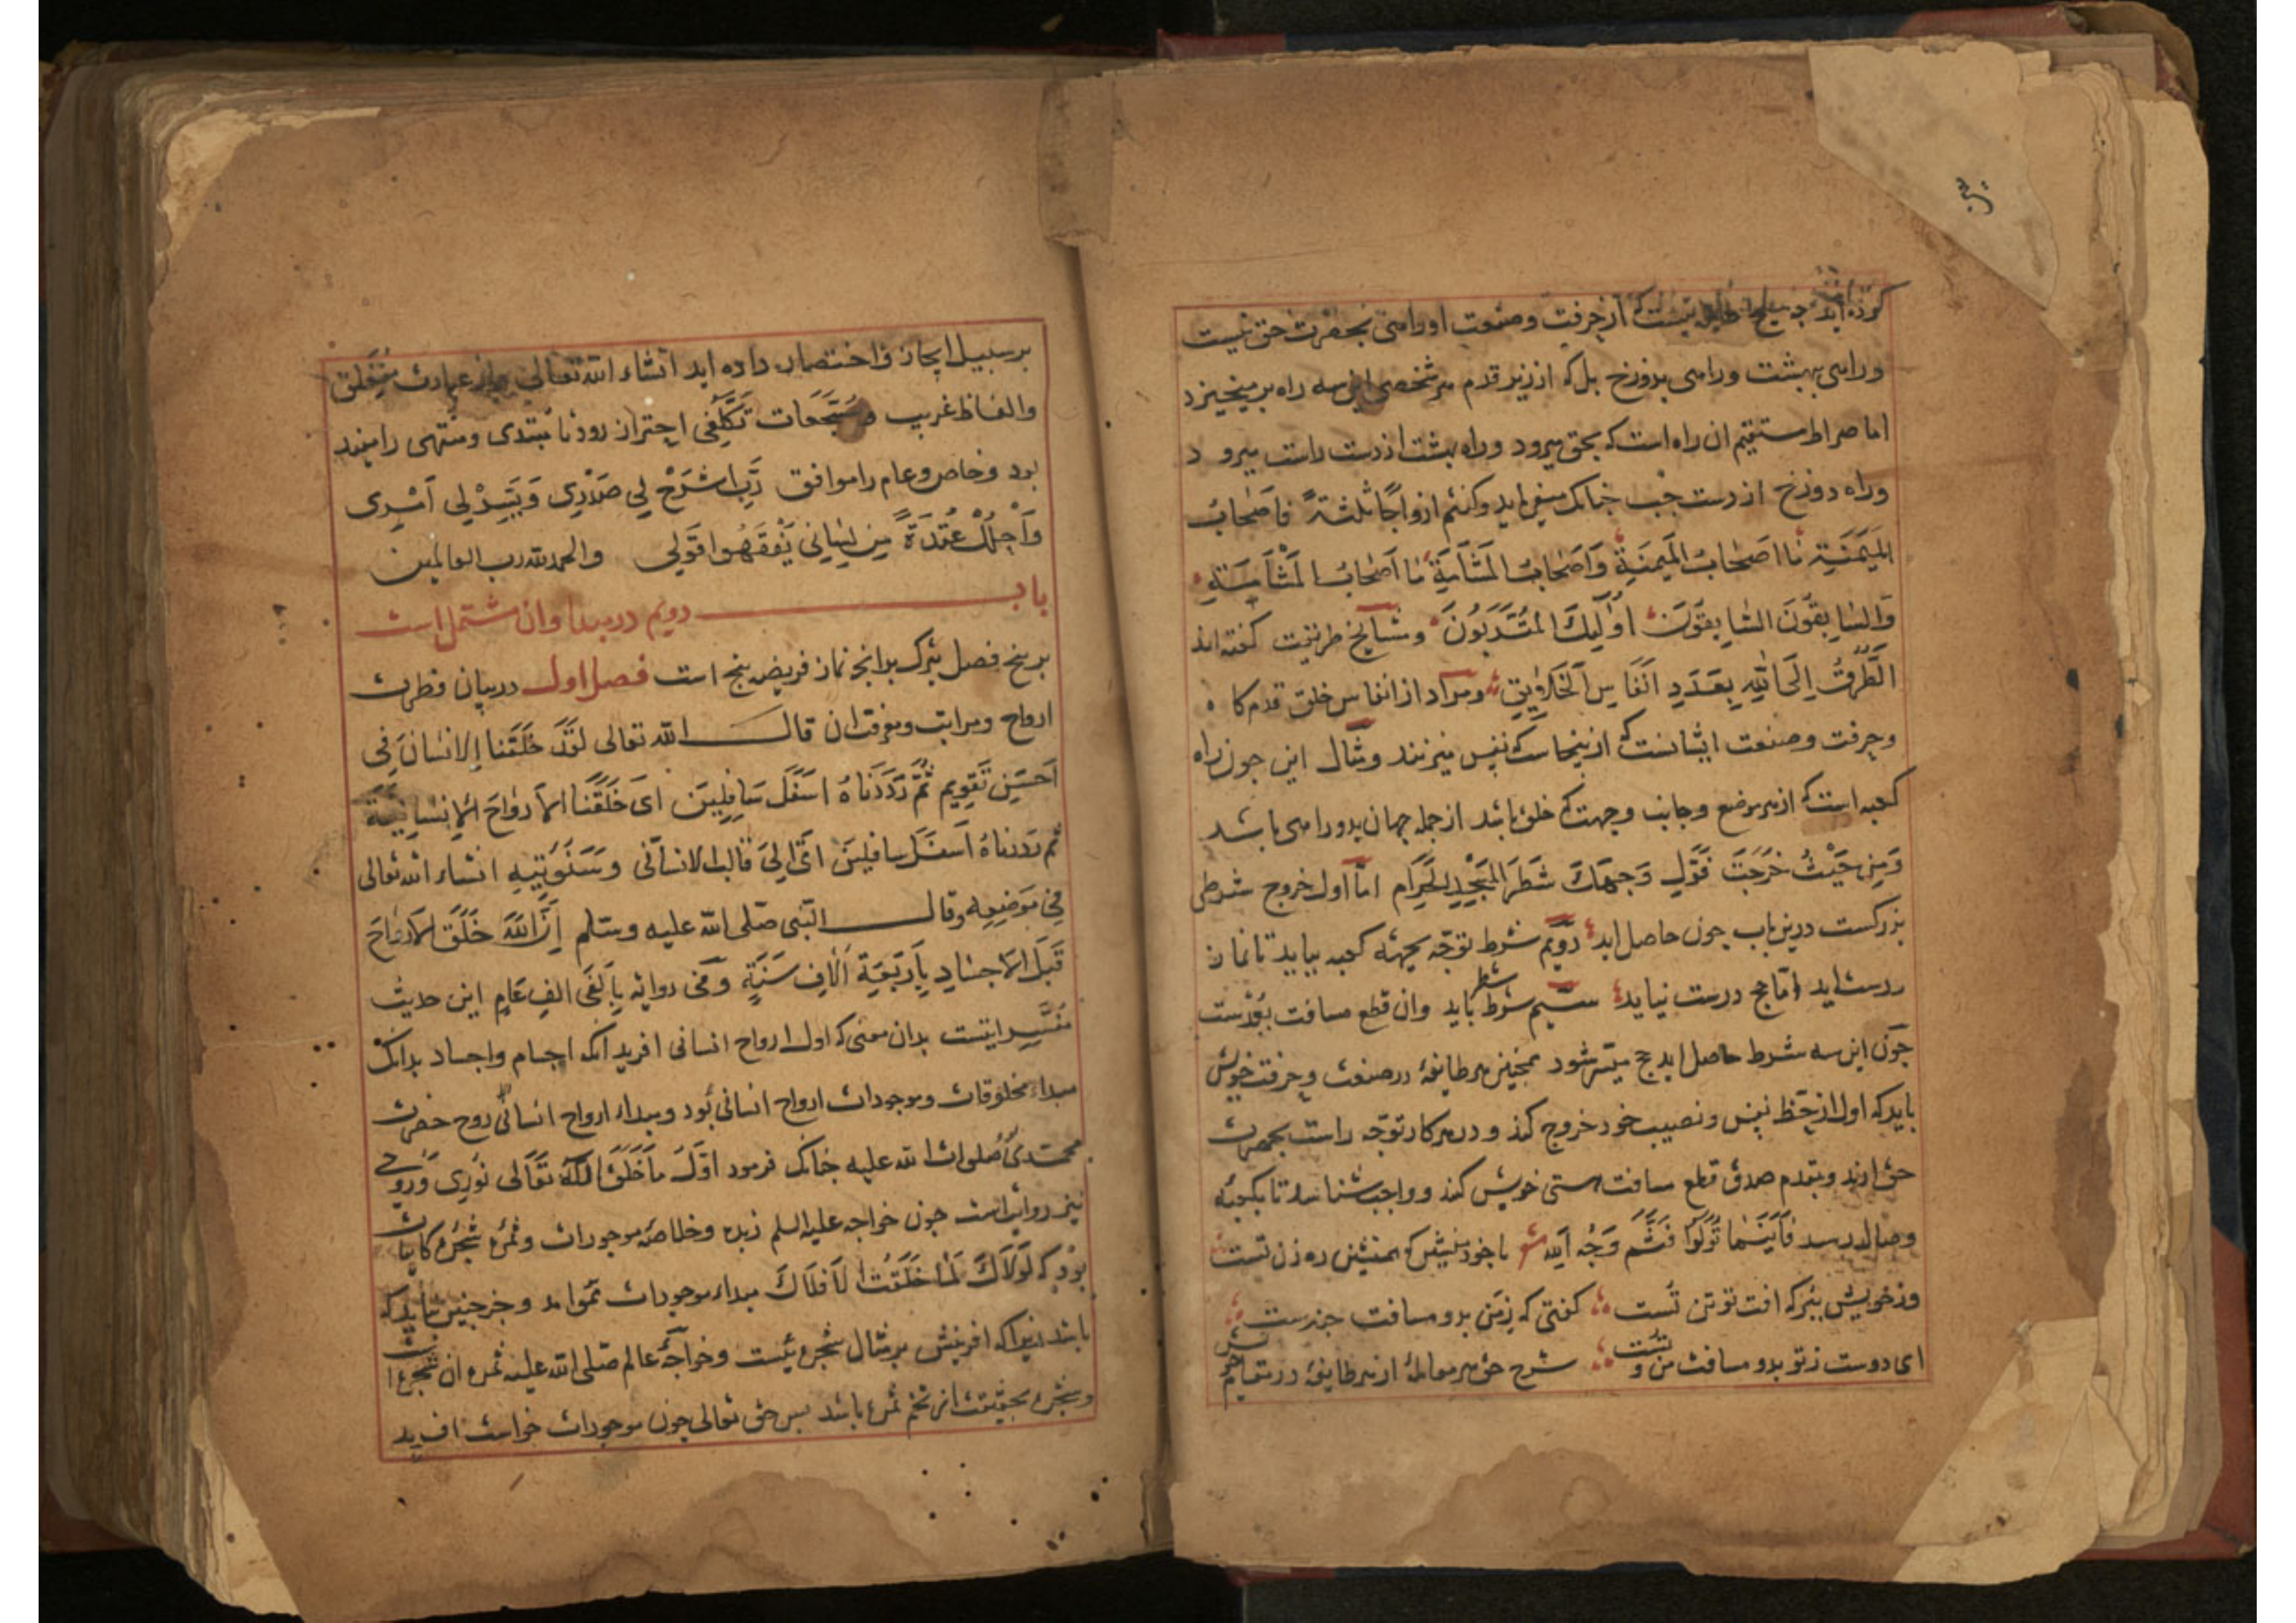 کرده اید هیچ طایفه نیست که از حرفت وصنعت او راهی بحضرت حق نیست
وراهی ببهشت وراهی بدوزخ بل که از زیر قدم هر شخصی این سه راه برمیخیزد
اما صراط مستقیم ان راه است که بحق میرود وراه بهشت از دست راست میرود
وراه دوزخ از دست چب جنانک میفرماید وَکنتُم ازواجًا ثلثةً فاَصحابُ
المَیمَنَةِ مٰا اصَحابُ المَیمَنَةِ وَاَصَحابُ المَشأَمَةِ مٰا اَصحابُ المَشأَمَةِ
وَالسّابِقُونَ السّابِقُونَ اُولٰئِكَ المُقَرَبُونَ ومشایخ طریقت کفته اند
الَطُرقُ اِلَی اللّٰهِ بِعَدَدِ اَنفَاسِ اَلخَلایِقِ ومراد از انفاس خلق قدم کاه
وحرفت وصنعت ایشانست که از ینجاست که نفس میزنند ومثال این جون راه
کعبه است که از هر موضع وجانب وجهت که خلق باشد از جمله جهان بدو راهی باشد
وَمِن حَیْثُ خَرَجتَ فَوَلِ وَجهَكَ شَطرَ المَسْجِدِ الحَرَام امّا اول خروج شرطی
بزرکست درین باب جون حاصل اید دُوّیم شرط توجّه بجهة کعبه بباید تا نماز
درست اید امّا حج درست نیاید سیّم شرط شطر باید وان قطع مسافت بعُدْست
جون این سه شرط حاصل اید حج میسّر شود همجنین هر طایفهٔ در صنعت وحرفت خویش
باید که اول از حَظ نفس ونصیب خود خروج کند و در هر کار توجّه راست بحضرت
حق ارند وبقدم صدق قطع مسافت هستی خویش کند و واجب شناسد تا بکعبهٔ
وصال در رسد فَاَیْنَمٰا تُوَلّوُا فَثَمَّ وَجْهُ اَللّه شو با خود منشین که همنشین ره زن تست
وز خویش ببر که افت تو تن تست کفتی که زمَن بدو مسافت جندست
ای دوست زتو بدو مسافت من و تست شرح حق هر معاملهٔ از هر طایفهٔ در مقام خویش
بر سبیل ایجاز واختصار داده اید انشاء اللّه تعالی واز عبارت مُغلَق
والفاظ غریب وسَجَعات تَکَلُّفی احتراز رود تا مُبتدی ومنتهی را مفید
بود وخاص وعام را موافق رَبِ اشرَحْ لِی صَدْرِی وَیَسِّرْ لِی اَمْرِی
وَاحْلُلْ عُقدَةً مِن لِسٰانِی یَفْقَهُوا قَولی والحمد للّه رب العالمین
باب دویم در مبدا وان مشتمل است
بر بنج فصل تبرک بدانجه نماز فریضه بنج است فصل اول در بیان فطرت
ارواح ومراتب ومعرفت ان قال اللّه تعالی لقَدَ خَلَقنا الاِنسٰانَ فِی
اَحَسَنِ تَقویِم ثُمَّ رَدَدَناهُ اسَفَلَ سَافِلِیَن ای خَلَقَنا الاَرواحَ الاِنسٰانِیّةَ
ثم رَدَدناهُ اَسفَلَ سافِلِینَ اَیَ اِلیَ قالب الانسانی وسَنُؤتِیهِ انشاء اللّه تعالی
فِی مَوضِعِه وقال النّبی صلّی اللّه علیه وسلّم اِنَّ اللّٰهَ خَلَقَ الاَرَواحَ
قَبَلَ الاَجسٰادِ بِاَربَعَةِ اَلٰافِ سَنَةٍ وَفی روایة بِاَلفَی الفِ عَامٍ این حدیث
مُفَسِّر ایتست بدان معنی که اول ارواح انسانی افرید انکه اجسام واجساد بدانک
مبداء مخلوقات وموجودات ارواح انسانی بُود ومبداء ارواح انسانی روح حضرت
محمّدی صَلوات اللّه علیه جنانک فرمود اَوّلُ مٰا خَلَقَ اللّٰهُ تَعَالی نُورِی وَرُوحی
نیز روایتست جون خواجه علیه السلم زبدهٔ وخلاصهٔ موجودات وثمرهٔ شجرهٔ کاینات
بُود که لَوَلاَكَ لَمٰا خَلَقْتُ الَافلَاكَ مبداء موجودات هَم او امد وجز جنین نباید که
باشد زیرا که افرینش بر مثال شجرهٔ یست وخواجهٔ عالم صلّی اللّه علیه ثمره ان شجره است
وشجره بحقیقت از تخم ثمره باشد بس حق تعالی جون موجودات خواست افرید